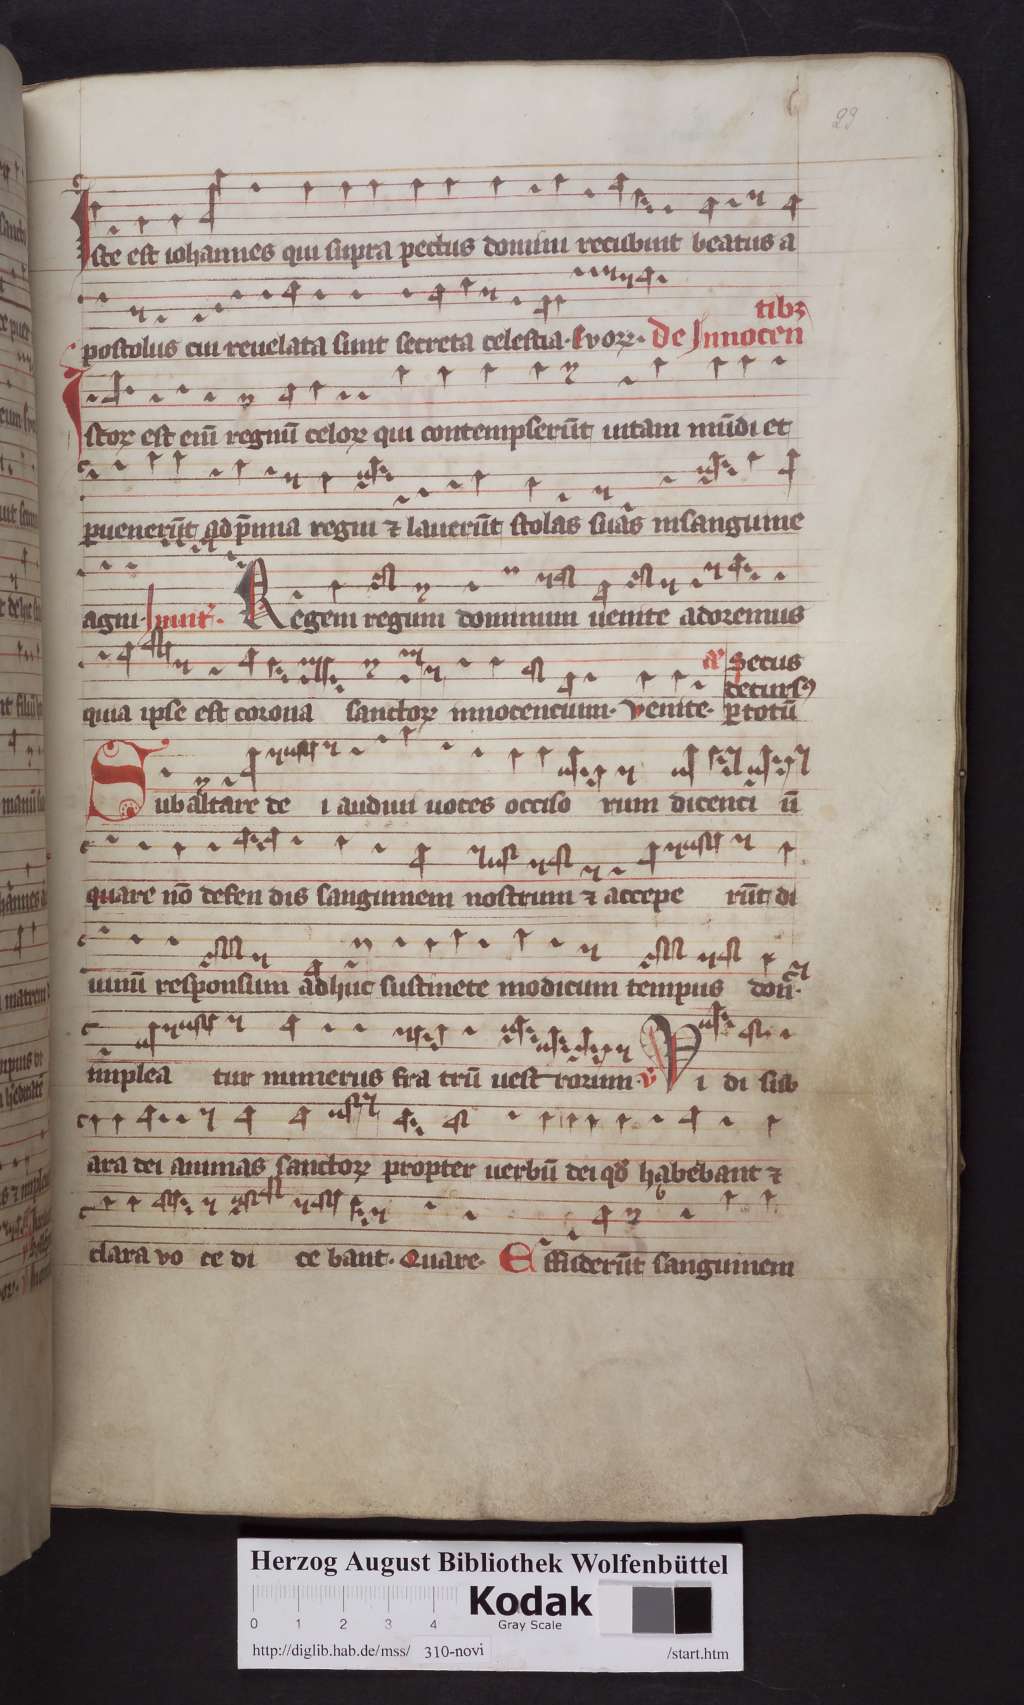 29
Iste est iohannes qui supra pectus domini recubuit beatus a
tibꝫ
postolus cui reuelata sunt secreta celestia. Evoꝝ. De Innocen
Istoꝝ est enī regnū celoꝝ qui contempserūt uitam mūdi et
puenerūt ad p̄mia regni ⁊ lauerūt stolas suas insanguine
agni. Inuit̉. Regem regum dominum uenite adoremus
Secus
decursꝰ
quia ipse est corona sanctoꝝ innocencium. Venite. p totū
Sub altare de i audiui uoces occiso rum dicenci ū
quare nō defen dis sanguinem nostrum ⁊ accepe rūt di
uinū responsum adhuc sustinete modicum tempus don̄.
implea tur numerus fra trū uest rorum. V Vi di sub
ara dei animas sanctoꝝ propter uerbū dei qd̄ habebant ⁊
clara vo ce di ce bant. Quare. Effuderūt sanguinem
Herzog August Bibliothek Wolfenbüttel
Kodak
Gray Scale
0 1 2 3 4
http://diglib.hab.de/mss/ 310-novi /start.htm